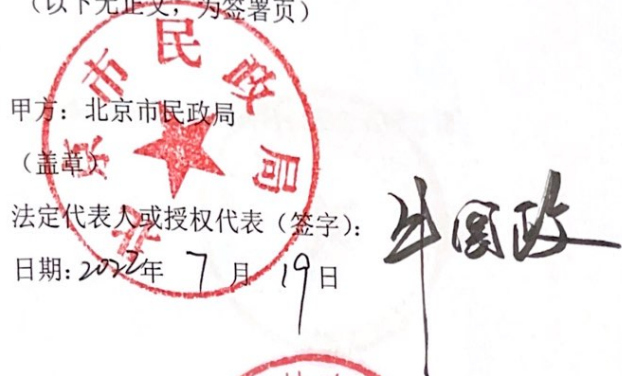 （以下无正文，为签署页）
北京市民政局
甲方：北京市民政局
（盖章）
法定代表人或授权代表（签字）：
日期：2022年 7 月 19 日